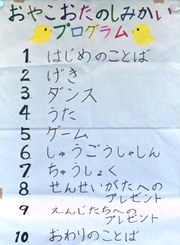 おやこおたのしみかい
プログラム
1. はじめのことば
2 げき
3. ダンス
4 うた
5 ゲーム
6 しゅうごうしゃしん
7 ちゅうしょく
8 せんせいがたへの
プレゼント
9. えんじたちへの
プレゼント
10 おわりのことば